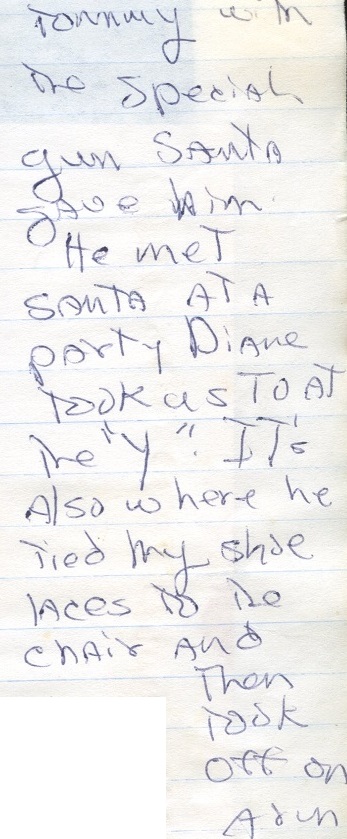 Tommy with
The Special
gun Santa
gave him.
He met
Santa at a
party Diane
Took us To at
The "Y". IT's
Also where he
Tied my shoe
laces to the
chair and
Then
Took
off on
A run